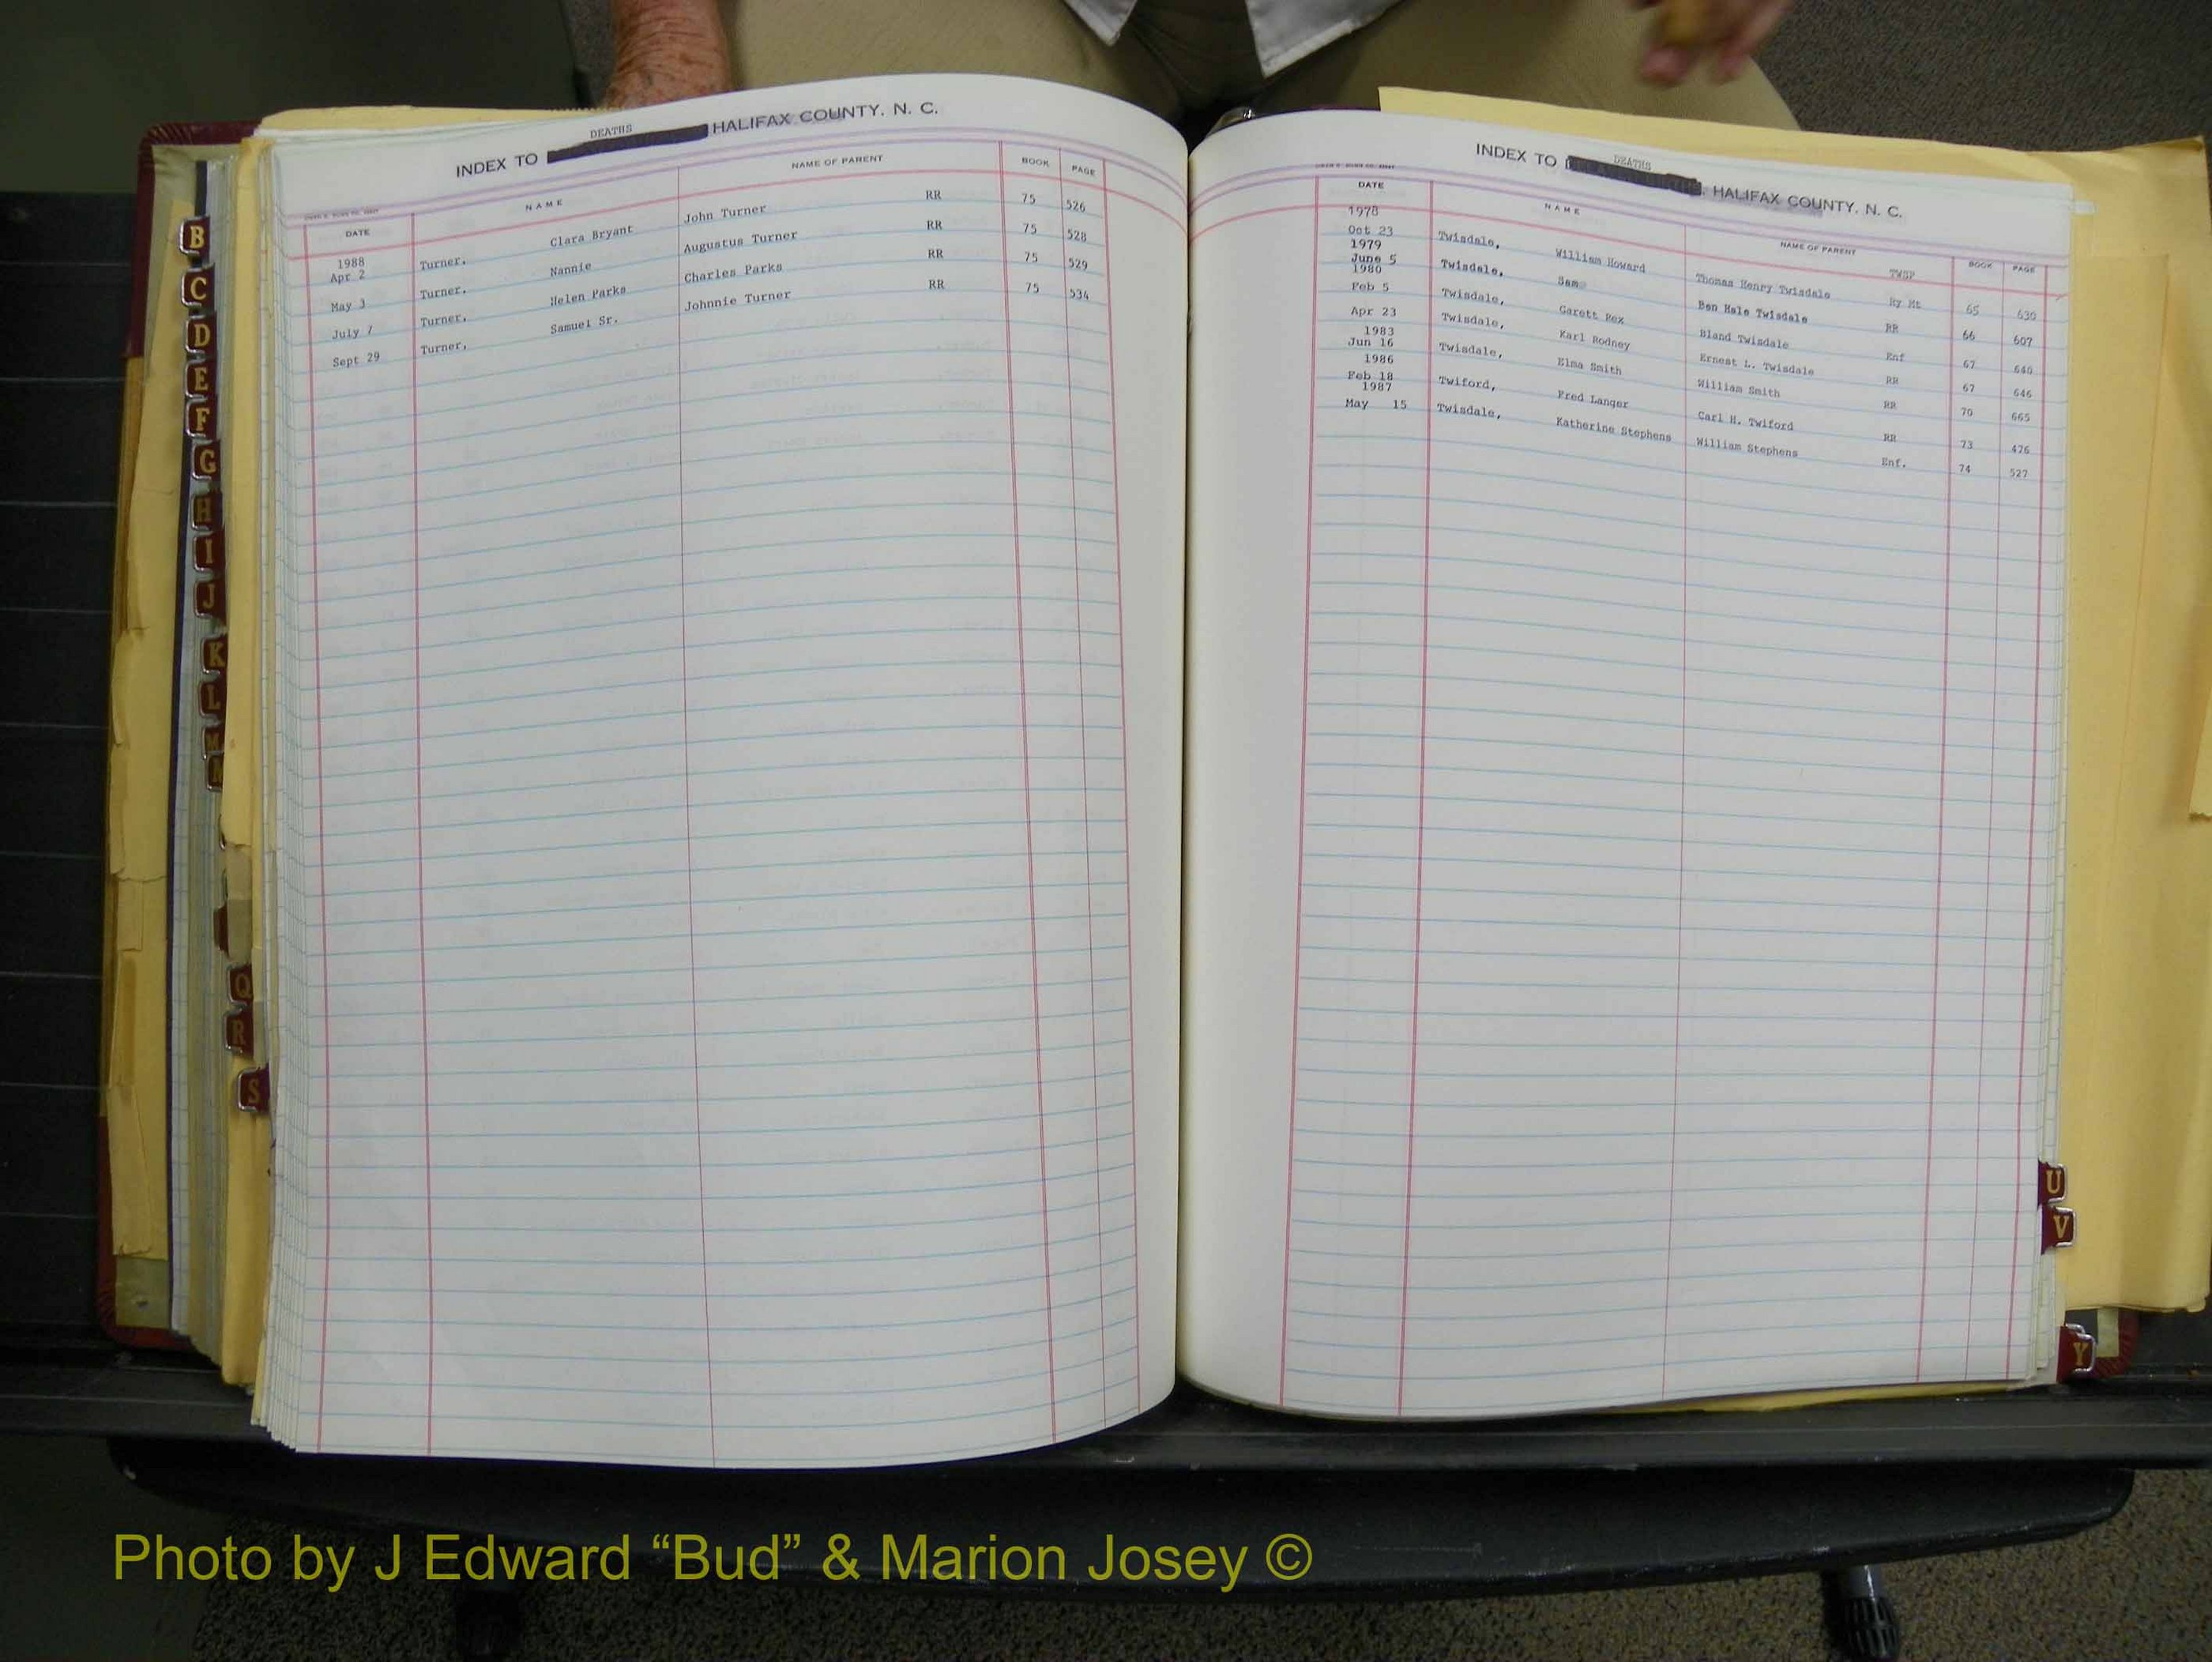 DEATHS
INDEX TO HALIFAX COUNTY. N. C.
DATE NAME NAME OF PARENT BOOK PAGE
1988
Apr 2 Turner, Clara Bryant John Turner RR 75 526
May 3 Turner, Nannie Augustus Turner RR 75 528
July 7 Turner, Helen Parks Charles Parks RR 75 529
Sept 29 Turner, Samuel Sr. Johnnie Turner RR 75 534
DEATHS
INDEX TO HALIFAX COUNTY, N. C.
DATE NAME NAME OF PARENT TWSP BOOK PAGE
1978
Oct 23 Twisdale, William Howard Thomas Henry Twisdale Ry Mt 65 630
1979
June 5 Twisdale, Sam Ben Hale Twisdale RR 66 607
1980
Feb 5 Twisdale, Garett Rex Bland Twisdale Enf 67 640
Apr 23 Twisdale, Karl Rodney Ernest L. Twisdale RR 67 646
1983
Jun 16 Twisdale, Elma Smith William Smith RR 70 665
1986
Feb 18 Twiford, Fred Langer Carl H. Twiford RR 73 476
1987
May 15 Twisdale, Katherine Stephens William Stephens Enf. 74 527
B
C
D
E
F
G
H
I
J
K
L
M
N
Q
R
S
U
V
Y
Photo by J Edward “Bud” & Marion Josey ©